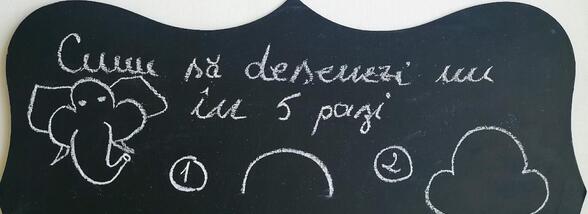 Cum să desenezi un
în 5 pași
1 2